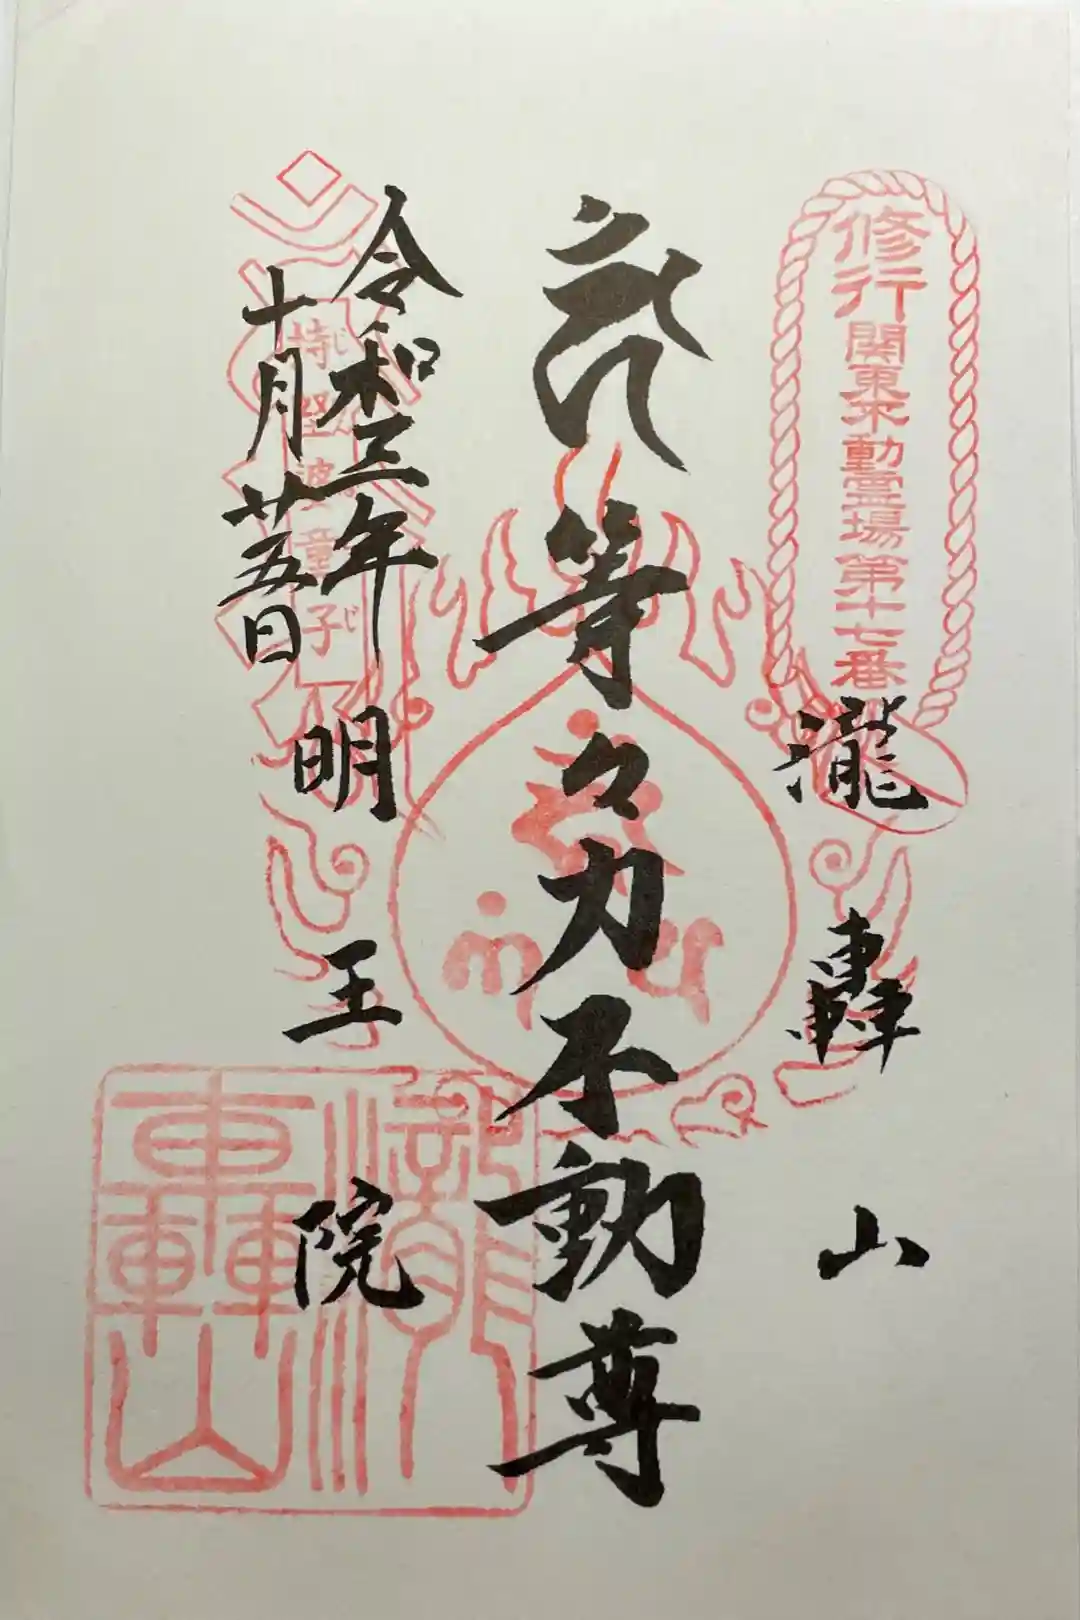 修行
関東不動霊場第十七番
瀧轟山
等々力不動尊
令和三年
十月廿五日
明王院
瀧轟山